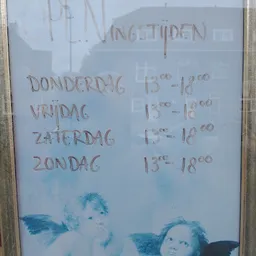 OPENINGSTIJDEN
DONDERDAG 13⁰⁰-18⁰⁰
VRIJDAG 13⁰⁰-18⁰⁰
ZATERDAG 13⁰⁰-18⁰⁰
ZONDAG 13⁰⁰-18⁰⁰